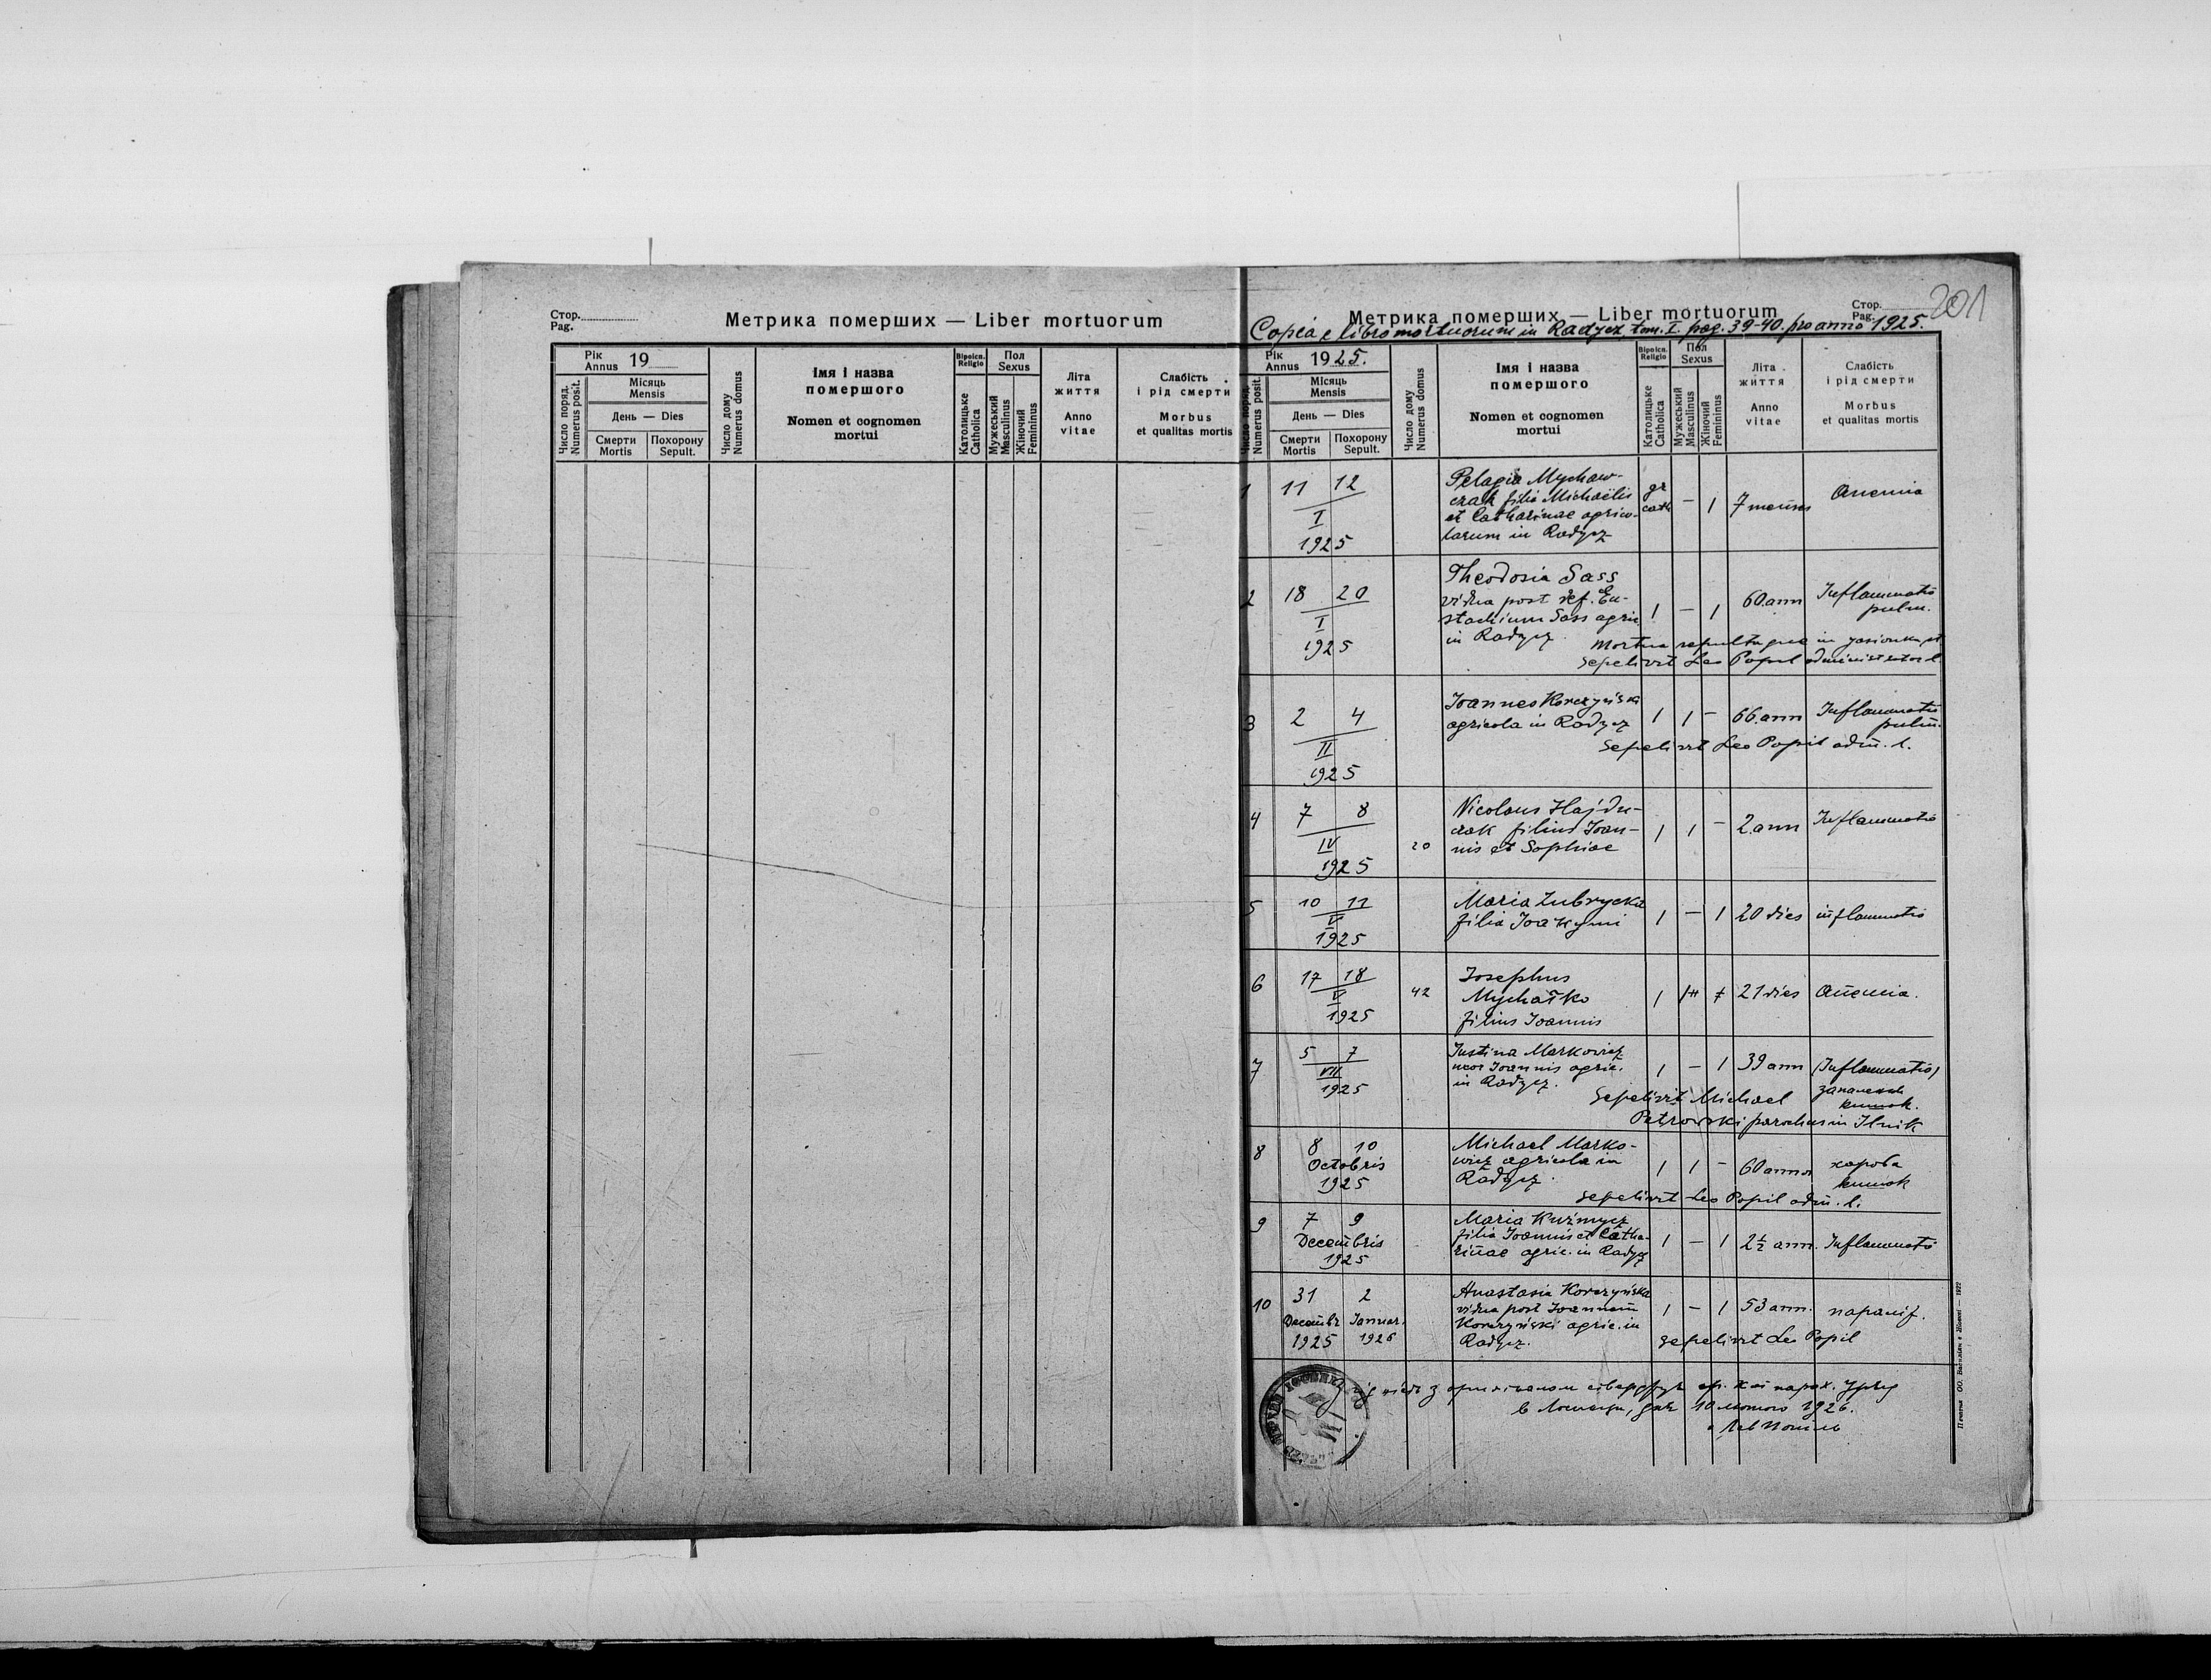 Стор.
Pag.
Метрика померших — Liber mortuorum
Рік
Annus 19
Місяць
Mensis
День — Dies
Смерти
Mortis
Похорону
Sepult.
Число поряд.
Numerus posit.
Число дому
Numerus domus
Імя і назва
помершого
Nomen et cognomen
mortui
Віроісп.
Religio
Католицьке
Catholica
Пол
Sexus
Мужеський
Masculinus
Жіночий
Femininus
Літа
життя
Anno
vitae
Слабість
і рід смерти
Morbus
et qualitas mortis
Метрика померших — Liber mortuorum
Стор.
Pag.
201
Copia e libro mortuorum in Radycz, tom. I. pag. 39-40. pro anno 1925.
Рік
Annus 1925.
Місяць
Mensis
День — Dies
Смерти
Mortis
Похорону
Sepult.
Число поряд.
Numerus posit.
Число дому
Numerus domus
Імя і назва
помершого
Nomen et cognomen
mortui
Віроісп.
Religio
Католицьке
Catholica
Пол
Sexus
Мужеський
Masculinus
Жіночий
Femininus
Літа
життя
Anno
vitae
Слабість
і рід смерти
Morbus
et qualitas mortis
1 11 12 I 1925
Pelagia Mychaw-
czak filia Michaëlis
et Catharinae agrico-
larum in Radycz
gr cath — 1 7 menses Anemia
2 18 20 I 1925
Theodosia Sass
vidua post def. Eu-
stachium Sass agric
in Radycz.
1 — 1 60 ann Inflammatio pulm.
Mortua sepultaque in Jasionka
sepelivit Leo Popil administrator
3 2 4 II 1925
Joannes Korczyński
agricola in Radycz
1 1 — 66 ann Inflammatio pulm.
Sepelivit Leo Popil adm. l.
4 7 8 IV 1925 20
Nicolaus Hajdu-
czak filius Joan-
nis et Sophiae
1 1 — 2 ann Inflammatio
5 10 11 V 1925
Maria Zubrycka
filia Joakymi
1 — 1 20 dies inflammatio
6 17 18 V 1925 42
Josephus
Mychaśko
filius Joannis
1 21 dies Anemia.
7 5 7 VII 1925
Justina Markowicz
uxor Joannis agric.
in Radycz.
1 — 1 39 ann (Inflammatio)
запаленє
кишок.
Sepelivit Michael
Petrowski parochus in Ilnik
8 8 10 Octobris 1925
Michael Marko-
wicz agricola in
Radycz.
1 1 — 60 annor хороба
кишок
sepelivit Leo Popil adm. l.
9 7 9 Decembris 1925
Maria Kuźmycz
filia Joannis et Catha-
rinae agric. in Radycz
1 — 1 2½ ann. Inflammatio
10 31 2
Decembr Januar.
1925 1926
Anastasia Korczyńska
vidua post Joannem
Korczyński agric. in
Radycz.
1 — 1 53 ann.
sepelivit Leo Popil
з оригіналом парох. Уряд
10 лютого 1926.
Лев Попиль
Печатня ОО. Василіян в Жовкві — 1922